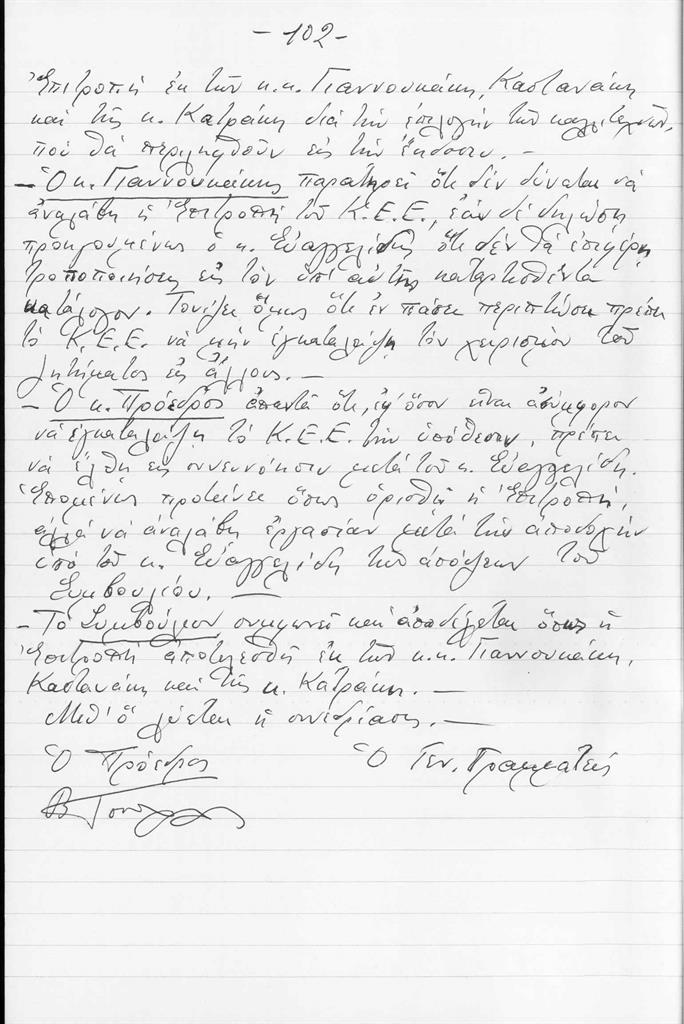 - 102 -
Ἐπιτροπή ἐκ τῶν κ.κ. Γιαννουκάκη, Καστανάκη
καί τῆς κ. Κατράκη διά τήν ἐπιλογήν τῶν καλλιτεχνῶν,
πού θά περιληφθοῦν εἰς τήν ἔκδοσιν. —
- Ὁ κ. Γιαννουκάκης παρατηρεῖ ὅτι δέν δύναται νά
ἀναλάβῃ ἡ Ἐπιτροπή τοῦ Κ.Ε.Ε., ἐάν δέ δηλώσῃ
προηγουμένως ὁ κ. Εὐαγγελίδης ὅτι δέν θά ἐπιφέρῃ
τροποποιήσεις εἰς τόν ὑπ' αὐτῆς καταρτισθέντα
κατάλογον. Τονίζει ὅμως ὅτι ἐν πάσῃ περιπτώσει πρέπει
τό Κ.Ε.Ε. νά μήν ἐγκαταλείψῃ τόν χειρισμόν τοῦ
ζητήματος εἰς ἄλλους. —
- Ὁ κ. Πρόεδρος ἀπαντᾶ ὅτι, ἐφ' ὅσον εἶναι ἀσύμφορον
νά ἐγκαταλείψῃ τό Κ.Ε.Ε. τήν ὑπόθεσιν, πρέπει
νά ἔλθῃ εἰς συνεννόησιν μετά τοῦ κ. Εὐαγγελίδη.
Ἑπομένως προτείνει ὅπως ὁρισθῇ ἡ Ἐπιτροπή,
ἀλλά νά ἀναλάβῃ ἐργασίαν μετά τήν ἀποδοχήν
ὑπό τοῦ κ. Εὐαγγελίδη τῶν ἀπόψεων τοῦ
Συμβουλίου. —
- Τό Συμβούλιον συμφωνεῖ καί ἀποδέχεται ὅπως ἡ
Ἐπιτροπή ἀποτελεσθῇ ἐκ τῶν κ.κ. Γιαννουκάκη,
Καστανάκη καί τῆς κ. Κατράκη. —
Μεθ' ὅ λύεται ἡ συνεδρίασις. —
Ὁ Πρόεδρος Ὁ Γεν. Γραμματεύς